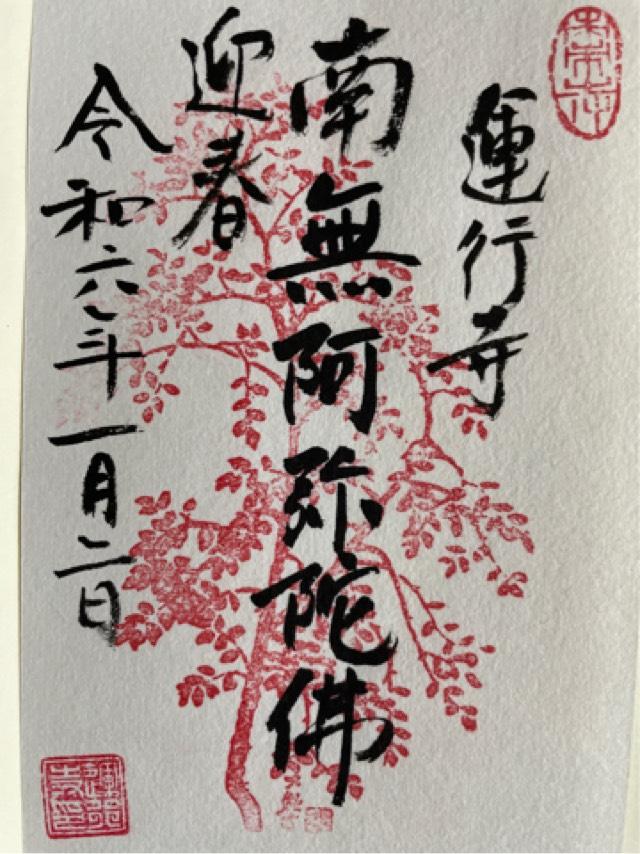 運行寺
南無阿弥陀佛
迎春
令和六年一月二日